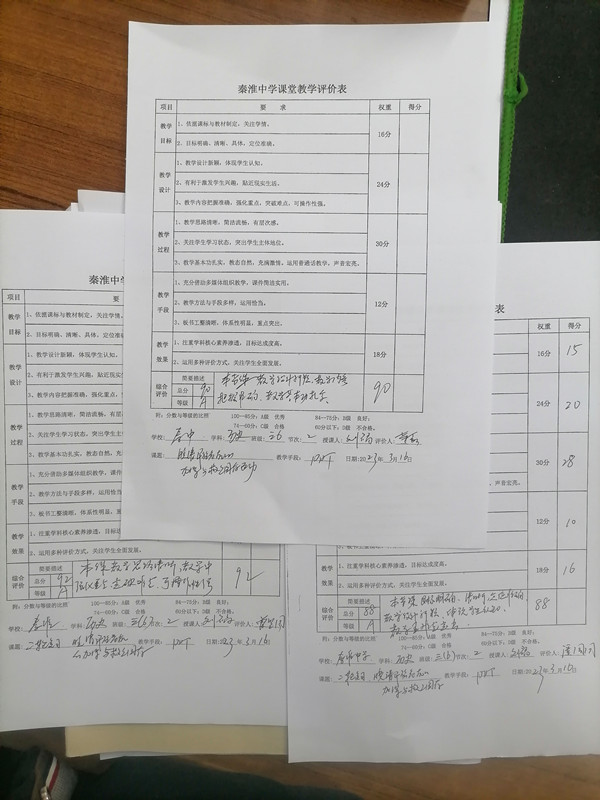 秦淮中学课堂教学评价表
项目 要 求 权重 得分
教学目标 1、依据课标与教材制定，关注学情。 16分
2、目标明确、清晰、具体，定位准确。
教学设计 1、教学设计新颖，体现学生认知。 24分
2、有利于激发学生兴趣，贴近现实生活。
3、教学内容把握准确，强化重点，突破难点，可操作性强。
教学过程 1、教学思路清晰，简洁流畅，有层次感。 30分
2、关注学生学习状态，突出学生主体地位。
3、教学基本功扎实，教态自然，充满激情，运用普通话教学，声音宏亮。
教学手段 1、充分借助多媒体组织教学，课件简洁实用。 12分
2、教学方法与手段多样，运用恰当。
3、板书工整清晰，体系性明显，重点突出。
教学效果 1、注重学科核心素养渗透，目标达成度高。 18分
2、运用多种评价方式，关注学生全面发展。
综合评价 简要描述
总分 90 90
等级 A
附：分数与等级的比照 100—85分：A级 优秀 84—75分：B级 良好；
74—60分：C级 合格 60分以下：D级 不合格。
学校： 秦中 学科： 历史 班级： 节次： 2 授课人： 评价人：
课题： 教学手段： PPT 日期：2023年3月16日
秦淮中学
项目 要
教学目标 1、依据课标与教材制定，关注学情
2、目标明确、清晰、具体，定位准确
教学设计 1、教学设计新颖，体现学生认知。
2、有利于激发学生兴趣，贴近现
3、教学内容把握准确，强化重点
教学过程 1、教学思路清晰，简洁流畅，有
2、关注学生学习状态，突出学生
3、教学基本功扎实，教态自然，充
教学手段 1、充分借助多媒体组织教学，课
2、教学方法与手段多样，运用恰
3、板书工整清晰，体系性明显，重
教学效果 1、注重学科核心素养渗透，目标达
2、运用多种评价方式，关注学生全面发展。
综合评价 简要描述
总分 92 92
等级 A
附：分数与等级的比照 100—85分：A级 优秀 84—75分：B级 良好；
74—60分：C级 合格 60分以下：D级 不合格。
学校： 秦淮 学科： 历史 班级： 节次： 2 授课人： 评价人：
课题： 二轮复习 教学手段： PPT 日期：2023年3月16日
表
权重 得分
16分 15
24分 20
30分 28
声音宏亮。
12分 10
1、注重学科核心素养渗透，目标达成度高。 18分 16
2、运用多种评价方式，关注学生全面发展。
综合评价 简要描述
总分 88 88
等级 A
附：分数与等级的比照 100—85分：A级 优秀 84—75分：B级 良好；
74—60分：C级 合格 60分以下：D级 不合格。
学校： 秦淮中学 学科： 历史 班级： 节次： 2 授课人： 评价人：
课题： 二轮复习 教学手段： PPT 日期：2023年3月16日